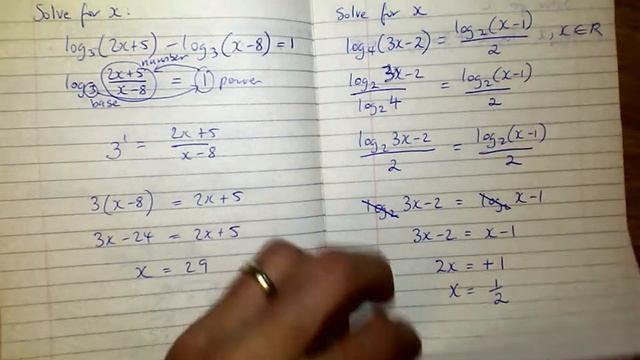 Solve for x:
log₃(2x+5) - log₃(x-8) = 1
number
log₃ (2x+5)/(x-8) = 1 power
base
3¹ = (2x+5)/(x-8)
3(x-8) = 2x+5
3x-24 = 2x+5
x = 29
Solve for x
log₄(3x-2) = log₂(x-1)/2 , x∈R
log₂ 3x-2/log₂ 4 = log₂(x-1)/2
log₂ 3x-2/2 = log₂(x-1)/2
log₂ 3x-2 = log₂ x-1
3x-2 = x-1
2x = +1
x = 1/2